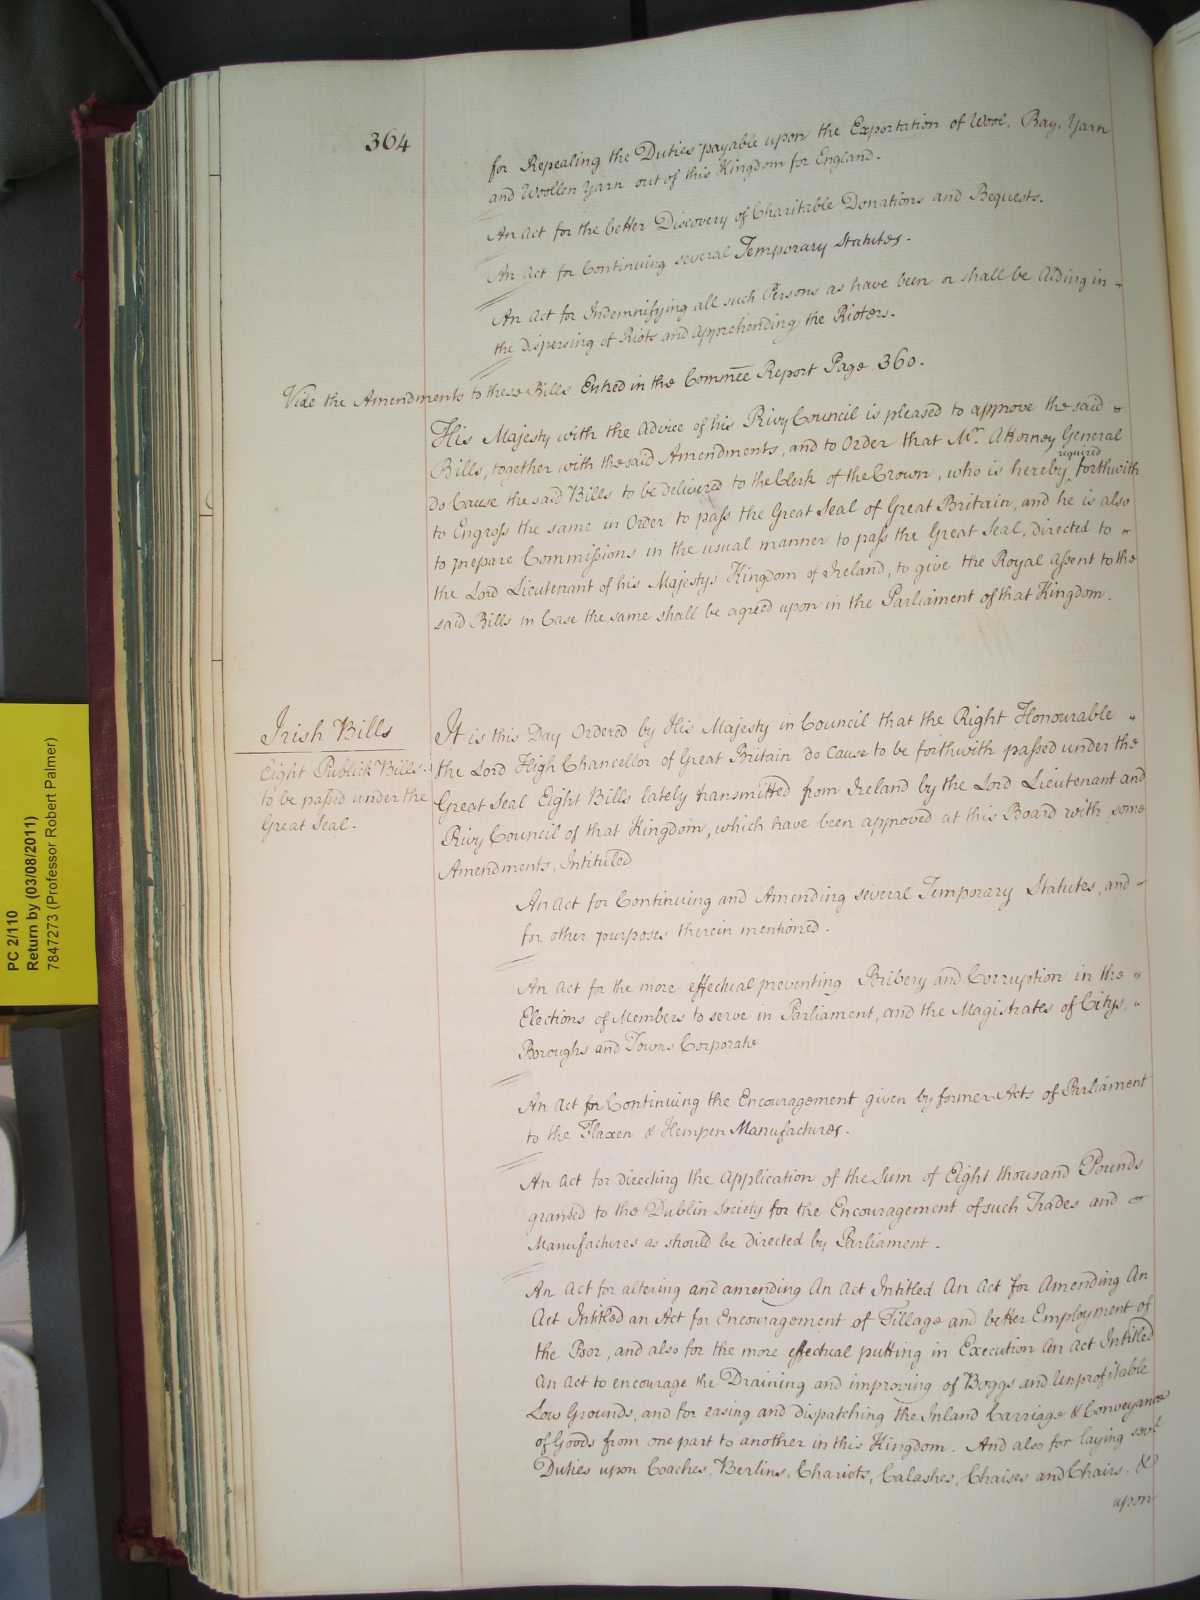 364
for Repealing the Duties payable upon the Exportation of Wool, Bay, Yarn
and Woollen Yarn out of this Kingdom for England.
An Act for the better Discovery of Charitable Donations and Bequests.
An Act for Continuing several Temporary Statutes.
An Act for Indemnifying all such Persons as have been or shall be Aiding in
the dispersing of Riots and apprehending the Rioters.
Vide the Amendments to these Bills Entred in the Commee Report Page 360.
His Majesty with the Advice of his Privy Council is pleased to approve the said
Bills, together with the said Amendments, and to Order that Mr. Attorney General
required
do Cause the said Bills to be delivered to the Clerk of the Crown, who is hereby forthwith
to Engross the same in Order to pass the Great Seal of Great Britain, and he is also
to prepare Commissions in the usual manner to pass the Great Seal, directed to
the Lord Lieutenant of his Majestys Kingdom of Ireland, to give the Royal Assent to the
said Bills in Case the same shall be agreed upon in the Parliament of that Kingdom.
Irish Bills
Eight Publick Bills
to be passed under the
Great Seal.
It is this Day Ordered by His Majesty in Council that the Right Honourable
the Lord High Chancellor of Great Britain do Cause to be forthwith passed under the
Great Seal Eight Bills lately transmitted from Ireland by the Lord Lieutenant and
Privy Council of that Kingdom, which have been approved at this Board with some
Amendments, Intituled
An Act for Continuing and Amending several Temporary Statutes, and
for other purposes therein mentioned.
An Act for the more effectual preventing Bribery and Corruption in the
Elections of Members to serve in Parliament, and the Magistrates of Citys,
Boroughs and Towns Corporate
An Act for Continuing the Encouragement given by former Acts of Parliament
to the Flaxen & Hempen Manufactures.
An Act for directing the Application of the Sum of Eight thousand Pounds
granted to the Dublin Society for the Encouragement of such Trades and
Manufactures as should be directed by Parliament.
An Act for altering and amending An Act Intitled An Act for Amending An
Act Intitled an Act for Encouragement of Tillage and better Employment of
the Poor, and also for the more effectual putting in Execution An Act Intitled
An Act to encourage the Draining and improving of Boggs and Unprofitable
Low Grounds, and for easing and dispatching the Inland Carriage & Conveyance
of Goods from one part to another in this Kingdom. And also for laying sevl
Duties upon Coaches, Berlins, Chariots, Calashes, Chaises and Chairs, &
upon
PC 2/110
Return by (03/08/2011)
7847273 (Professor Robert Palmer)